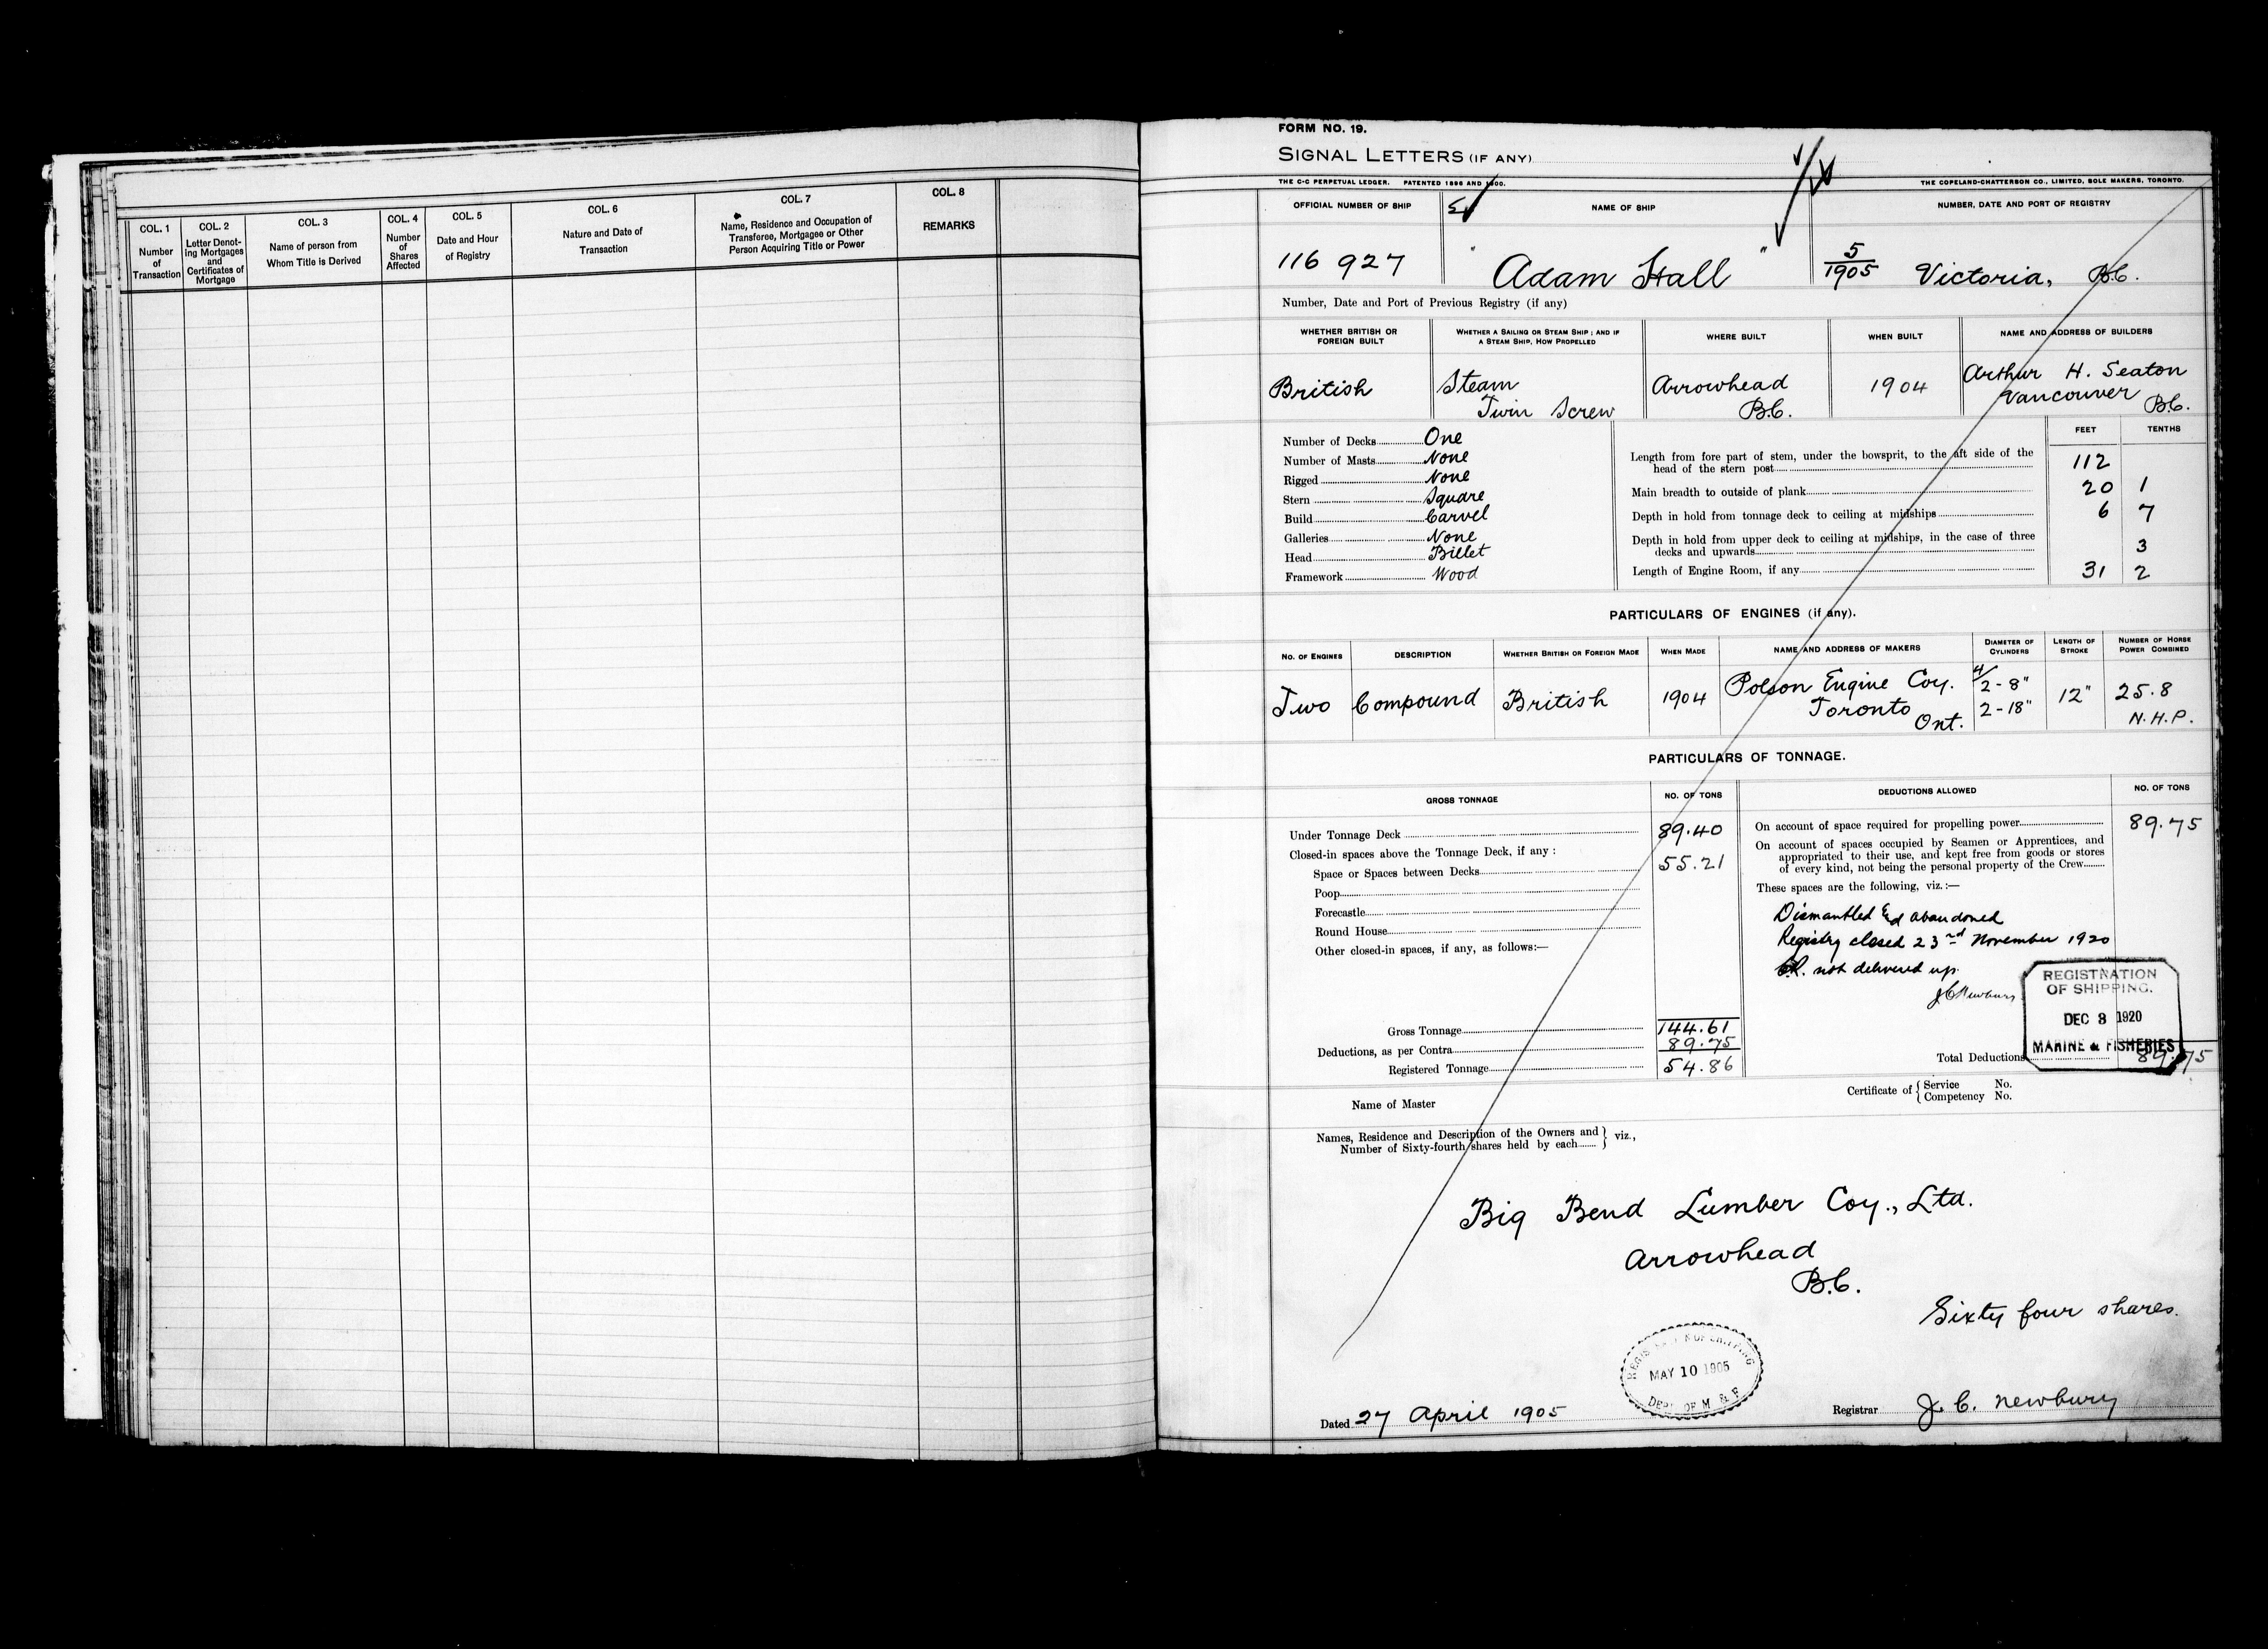 COL. 1
Number
of
Transaction
COL. 2
Letter Denot-
ing Mortgages
and
Certificates of
Mortgage
COL. 3
Name of person from
Whom Title is Derived
COL. 4
Number
of
Shares
Affected
COL. 5
Date and Hour
of Registry
COL. 6
Nature and Date of
Transaction
COL. 7
Name, Residence and Occupation of
Transferee, Mortgagee or Other
Person Acquiring Title or Power
COL. 8
REMARKS
FORM NO. 19.
SIGNAL LETTERS (IF ANY)
THE C-C PERPETUAL LEDGER. PATENTED 1896 AND 1900.
THE COPELAND-CHATTERSON CO., LIMITED, SOLE MAKERS, TORONTO.
OFFICIAL NUMBER OF SHIP
NAME OF SHIP
NUMBER, DATE AND PORT OF REGISTRY
116 927
"Adam Hall"
5/1905 Victoria, B.C.
Number, Date and Port of Previous Registry (if any)
WHETHER BRITISH OR
FOREIGN BUILT
WHETHER A SAILING OR STEAM SHIP; AND IF
A STEAM SHIP, HOW PROPELLED
WHERE BUILT
WHEN BUILT
NAME AND ADDRESS OF BUILDERS
British
Steam
Twin Screw
Arrowhead
B.C.
1904
Arthur H. Seaton
Vancouver
B.C.
Number of Decks One
Number of Masts None
Rigged None
Stern Square
Build Carvel
Galleries None
Head Billet
Framework Wood
FEET TENTHS
Length from fore part of stem, under the bowsprit, to the aft side of the
head of the stern post 112
Main breadth to outside of plank 20 1
Depth in hold from tonnage deck to ceiling at midships 6 7
Depth in hold from upper deck to ceiling at midships, in the case of three
decks and upwards 3
Length of Engine Room, if any 31 2
PARTICULARS OF ENGINES (if any).
NO. OF ENGINES
DESCRIPTION
WHETHER BRITISH OR FOREIGN MADE
WHEN MADE
NAME AND ADDRESS OF MAKERS
DIAMETER OF
CYLINDERS
LENGTH OF
STROKE
NUMBER OF HORSE
POWER COMBINED
Two
Compound
British
1904
Polson Engine Coy.
Toronto
Ont.
4/
2-8"
2-18"
12"
25.8
N.H.P.
PARTICULARS OF TONNAGE.
GROSS TONNAGE
NO. OF TONS
DEDUCTIONS ALLOWED
NO. OF TONS
Under Tonnage Deck 89.40
Closed-in spaces above the Tonnage Deck, if any:
Space or Spaces between Decks 55.21
Poop
Forecastle
Round House
Other closed-in spaces, if any, as follows:—
Gross Tonnage 144.61
Deductions, as per Contra 89.75
Registered Tonnage 54.86
On account of space required for propelling power 89.75
On account of spaces occupied by Seamen or Apprentices, and
appropriated to their use, and kept free from goods or stores
of every kind, not being the personal property of the Crew
These spaces are the following, viz.:—
Dismantled & abandoned
Registry closed 23rd November 1920
C.R. not delivered up.
J.C. Newbury
REGISTRATION
OF SHIPPING.
DEC 3 1920
MARINE & FISHERIES
Total Deductions 89.75
Name of Master
Certificate of { Service No.
Competency No.
Names, Residence and Description of the Owners and } viz.,
Number of Sixty-fourth shares held by each
Big Bend Lumber Coy., Ltd.
Arrowhead
B.C.
Sixty four shares.
REGISTRATION OF SHIPPING
MAY 10 1905
DEPT. OF M & F
Dated 27 April 1905
Registrar J. C. Newbury